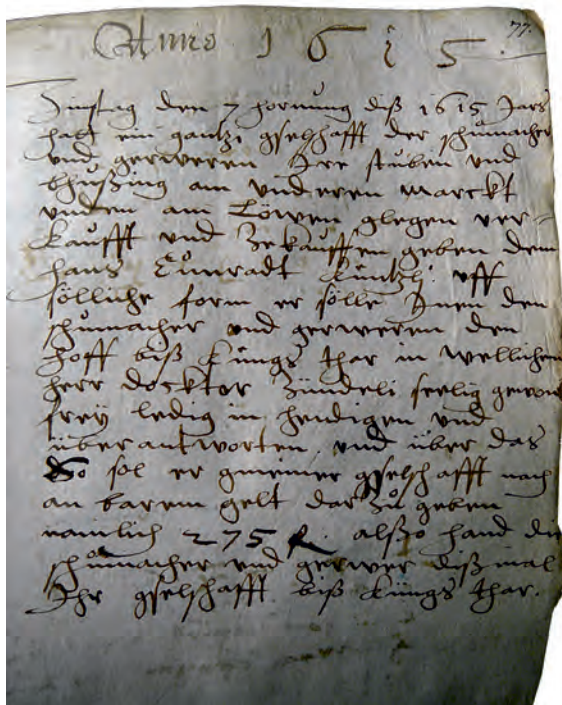 77.
Anno 1615.
Zinstag den 7 hornung diß 1615 Jars
hatt ein gantzi gselschafft der schůmacher
und gerweren Ire stuben und
bhußing am underen marckt
unden am Löwen glegen ver-
kaufft und zekauffen geben dem
hans Cůnradt Küntzli uff
sölliche form er sölle Inen den
schůmacher und gerweren den
hoff biß künigs thar in wellichem
herr docktor Zündeli seelig
frey ledig in hendigen und
überantworten und über das
So sol er gmeiner gselschafft noch
an barem gelt dar zů geben
namlich 275 fl. alßo hand die
schůmacher und gerwer dißmal
Ihr gselschafft biß küngs thar.